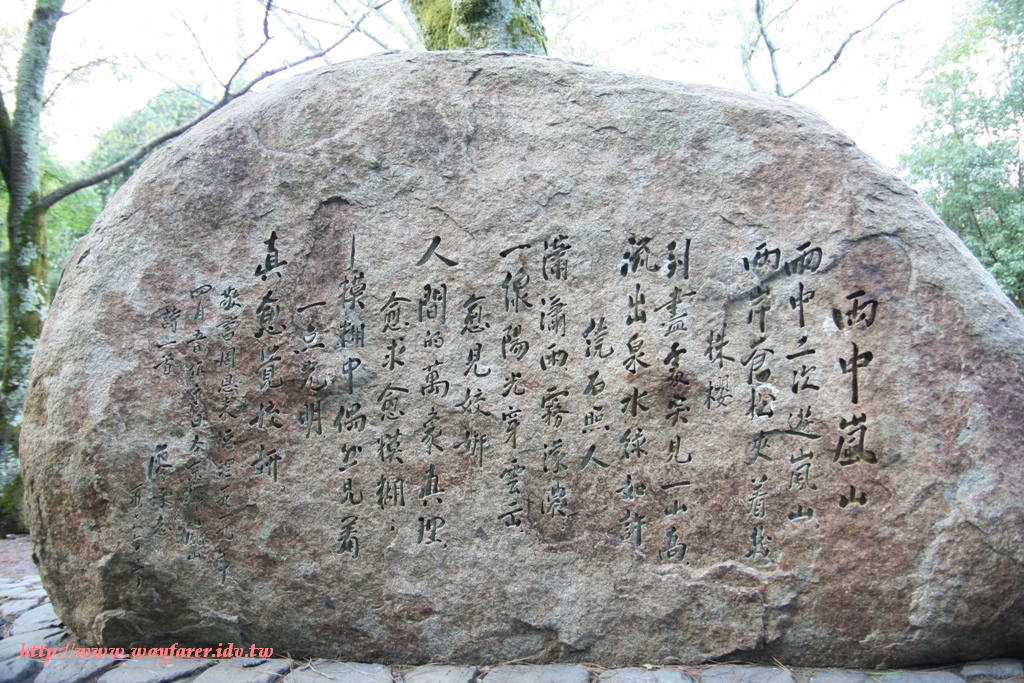 雨中嵐山
雨中二次遊嵐山
兩岸蒼松夾着幾
株櫻
到盡處突見一山高
流出泉水綠如許
繞石照人
瀟瀟雨霧濛濃
一線陽光穿雲出
愈見姣妍
人間的萬象真理
愈求愈模糊
模糊中偶然見着
一点光明
真愈覺姣妍
敬寫周恩來總理一九一九年
四月五日作
詩一首
廖承志
http://www.wayfarer.idv.tw